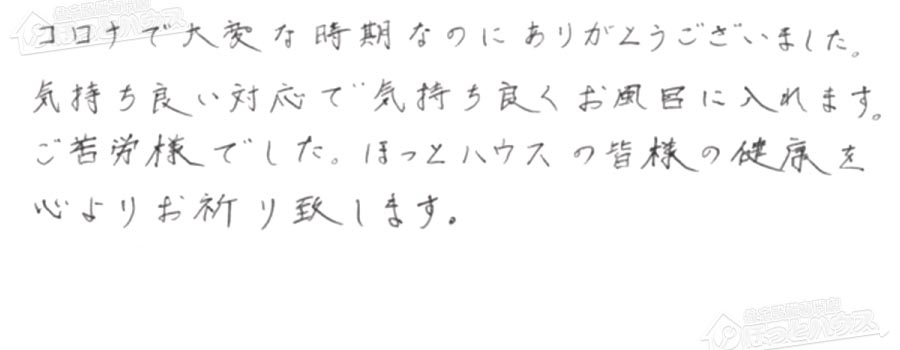 コロナで大変な時期なのにありがとうございました。
気持ち良い対応で気持ち良くお風呂に入れます。
ご苦労様でした。ほっとハウスの皆様の健康を
心よりお祈り致します。
住宅設備専門店
ほっとハウス
住宅設備専門店
ほっとハウス